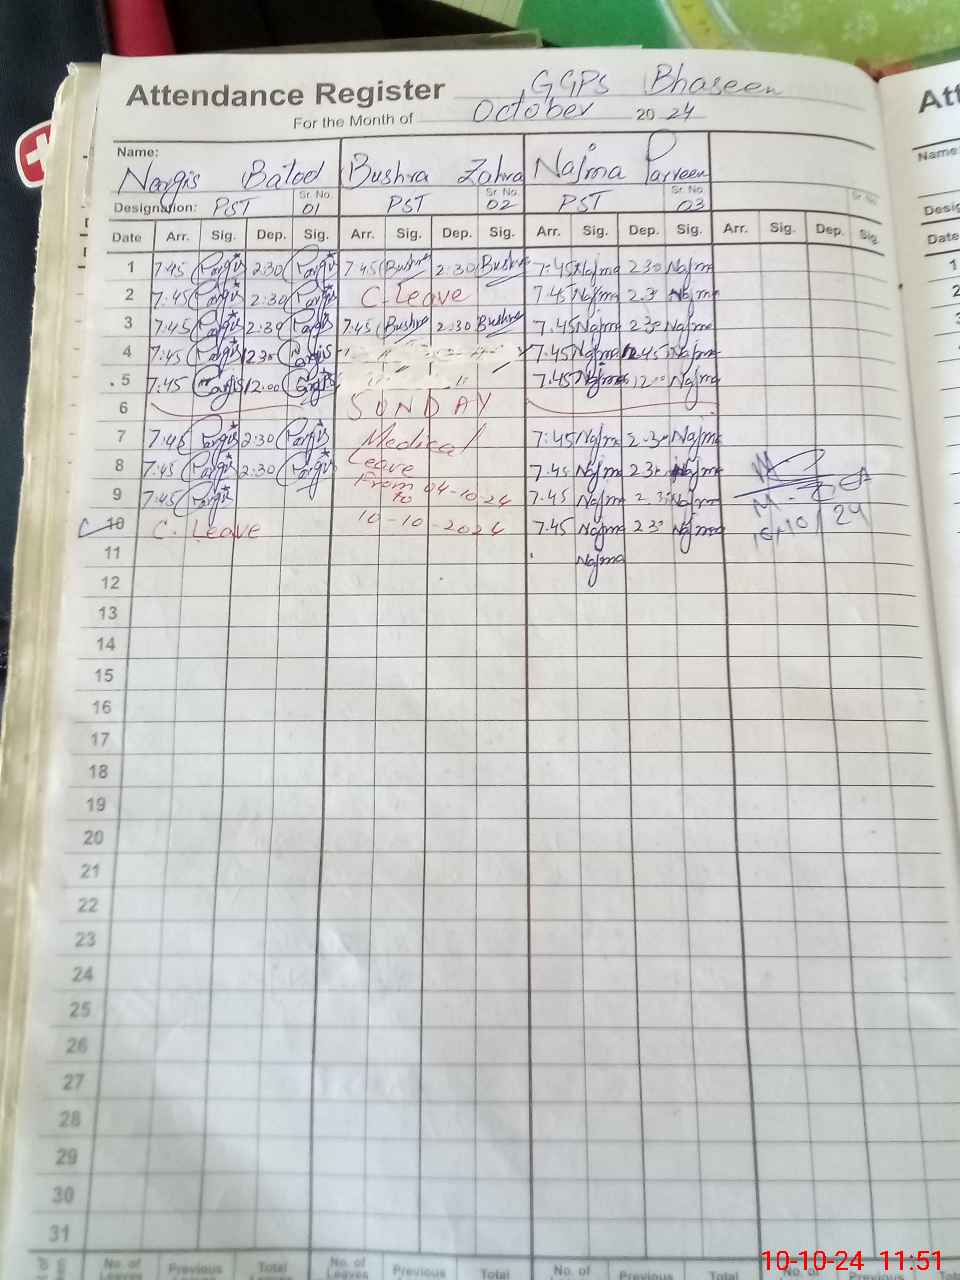 Attendance Register GGPS Bhaseen
For the Month of October 20 24
Name:
Nargis Batool Bushra Zahra Najma Parveen
Designation: PST Sr. No. 01 PST Sr. No. 02 PST Sr. No. 03 Sr. No.
Date Arr. Sig. Dep. Sig. Arr. Sig. Dep. Sig. Arr. Sig. Dep. Sig. Arr. Sig. Dep. Sig.
1 7:45 Nargis 2:30 Nargis 7:45 Bushra 2:30 Bushra 7:45 Najma 2 30 Najma
2 7:45 Nargis 2:30 Nargis C. Leave 7:45 Najma 2.3 Najma
3 7:45 Nargis 2:30 Nargis 7:45 Bushra 2:30 Bushra 7:45 Najma 2:30 Najma
4 7:45 Nargis 12:30 Nargis 7:45 Najma 12:45 Najma
5 7:45 Nargis 12:00 Nargis 7:45 Najma 12:00 Najma
6 SUNDAY
7 7:45 Nargis 2:30 Nargis Medical 7:45 Najma 2.30 Najma
8 7:45 Nargis 2:30 Nargis Leave 7:45 Najma 2 30 Najma
9 7:45 Nargis From 04-10-24 to 7:45 Najma 2.3 Najma
10 C. Leave 10-10-2024 7:45 Najma 2 30 Najma
11 Najma
12
13
14
15
16
17
18
19
20
21
22
23
24
25
26
27
28
29
30
31
No. of Leaves Previous Total No. of Leaves Previous Total No. of Previous Total No. of
10-10-24 11:51
Att
Name:
Date
1
2